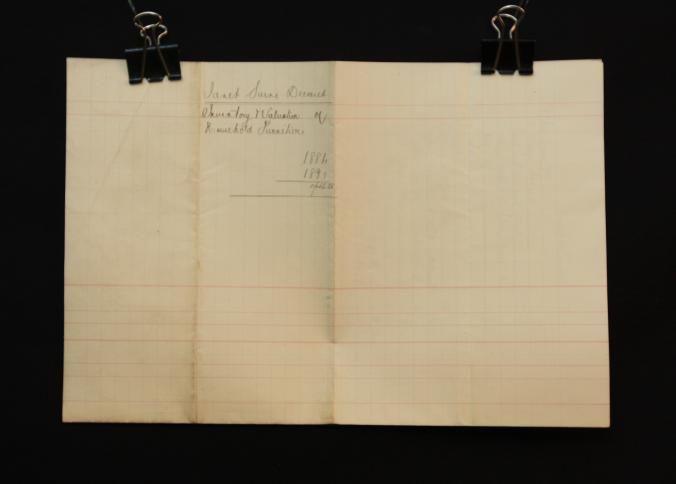 Janet Swans Deceased
Inventory & Valuation of
Household Furniture
1884
1891